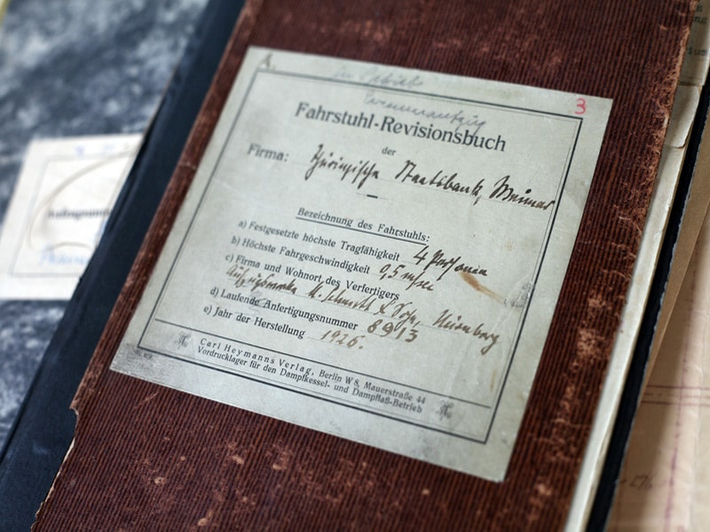 3
Personenaufzug
Fahrstuhl-Revisionsbuch
der
Firma: Thüringische Staatsbank, Weimar
Bezeichnung des Fahrstuhls:
a) Festgesetzte höchste Tragfähigkeit 4 Personen
b) Höchste Fahrgeschwindigkeit 0,5 m/sec
c) Firma und Wohnort des Verfertigers
Aufzugswerke M. Schmitt & Sohn, Nürnberg
d) Laufende Anfertigungsnummer 8913
e) Jahr der Herstellung 1926.
Carl Heymanns Verlag, Berlin W 8, Mauerstraße 44
Vordrucklager für den Dampfkessel- und Dampffaß-Betrieb